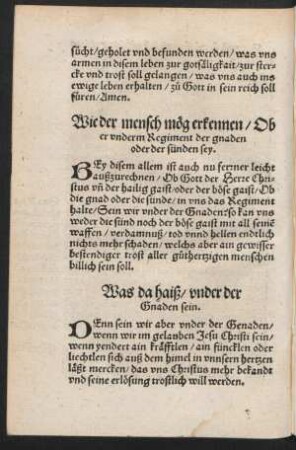 sücht/geholet vnd befunden werden/was vns
armen in disem leben zur gotsäligkait/zur ster-
cke vnd trost soll gelangen/was vns auch ins
ewige leben erhalten/zů Gott in sein reich soll
füren/Amen.
Wie der mensch mög erkennen/Ob
er vnderm Regiment der gnaden
oder der sünden sey.
BEy disem allem ist auch nu ferrner leicht
außzurechnen/Ob Gott der Herre Chri-
stus vñ der hailig gaist/oder der böse gaist/Ob
die gnad oder die sünde/in vns das Regiment
halte/Sein wir vnder der Gnaden/so kan vns
weder die sünd noch der böse gaist mit all seinē
waffen/verdamnuß/tod vnnd hellen endtlich
nichts mehr schaden/welchs aber ain gewisser
bestendiger trost aller gůthertzigen menschen
billich sein soll.
Was da haiß/vnder der
Gnaden sein.
DEnn sein wir aber vnder der Genaden/
wenn wir im gelauben Jesu Christi sein/
wenn yendert ain kräfftlen/ain füncklen oder
liechtlen sich auß dem himel in vnnsern hertzen
läßt mercken/das vns Christus mehr bekandt
vnd seine erlösung trostlich will werden.